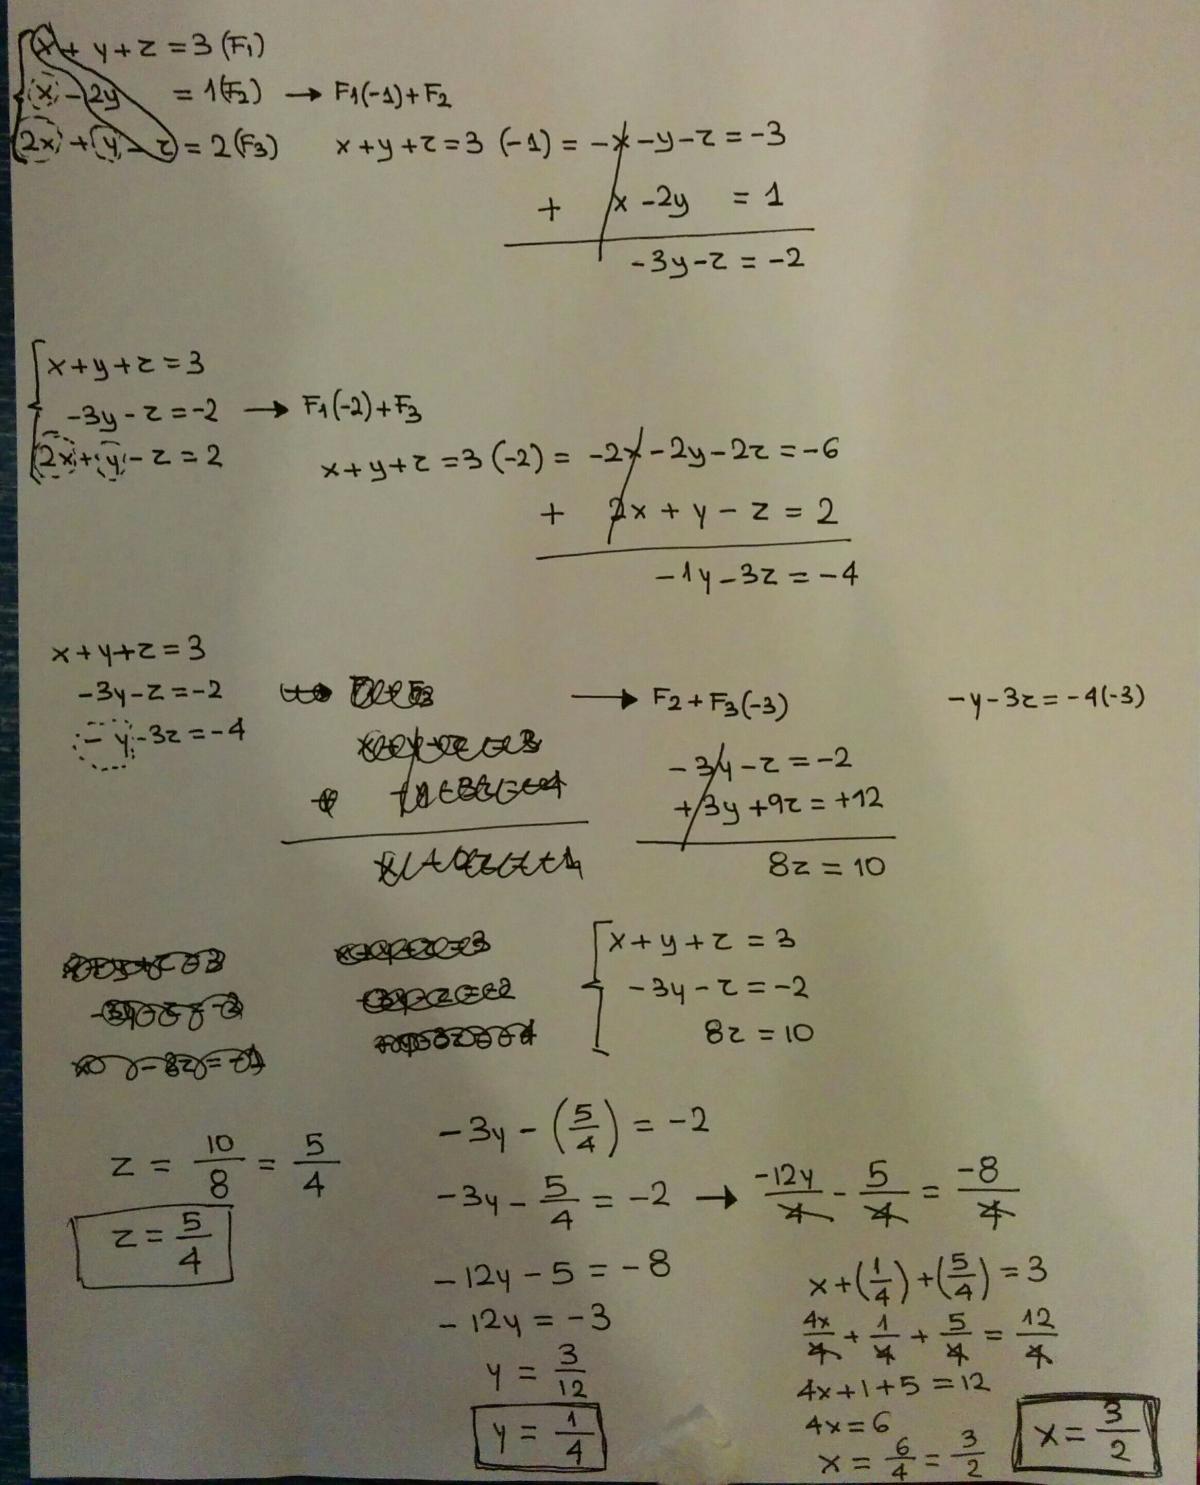 x + y + z = 3 (F₁)
x - 2y = 1 (F₂) → F₁(-1) + F₂
2x + y - z = 2 (F₃)
x + y + z = 3 (-1) = -x - y - z = -3
+ x - 2y = 1
-3y - z = -2
x + y + z = 3
-3y - z = -2 → F₁(-2) + F₃
2x + y - z = 2
x + y + z = 3 (-2) = -2x - 2y - 2z = -6
+ 2x + y - z = 2
-1y - 3z = -4
x + y + z = 3
-3y - z = -2
- y - 3z = -4
→ F₂ + F₃(-3)
-y - 3z = -4(-3)
-3y - z = -2
+3y + 9z = +12
8z = 10
x + y + z = 3
-3y - z = -2
8z = 10
z = 10/8 = 5/4
z = 5/4
-3y - (5/4) = -2
-3y - 5/4 = -2 → -12y/4 - 5/4 = -8/4
-12y - 5 = -8
-12y = -3
y = 3/12
y = 1/4
x + (1/4) + (5/4) = 3
4x/4 + 1/4 + 5/4 = 12/4
4x + 1 + 5 = 12
4x = 6
x = 6/4 = 3/2
x = 3/2